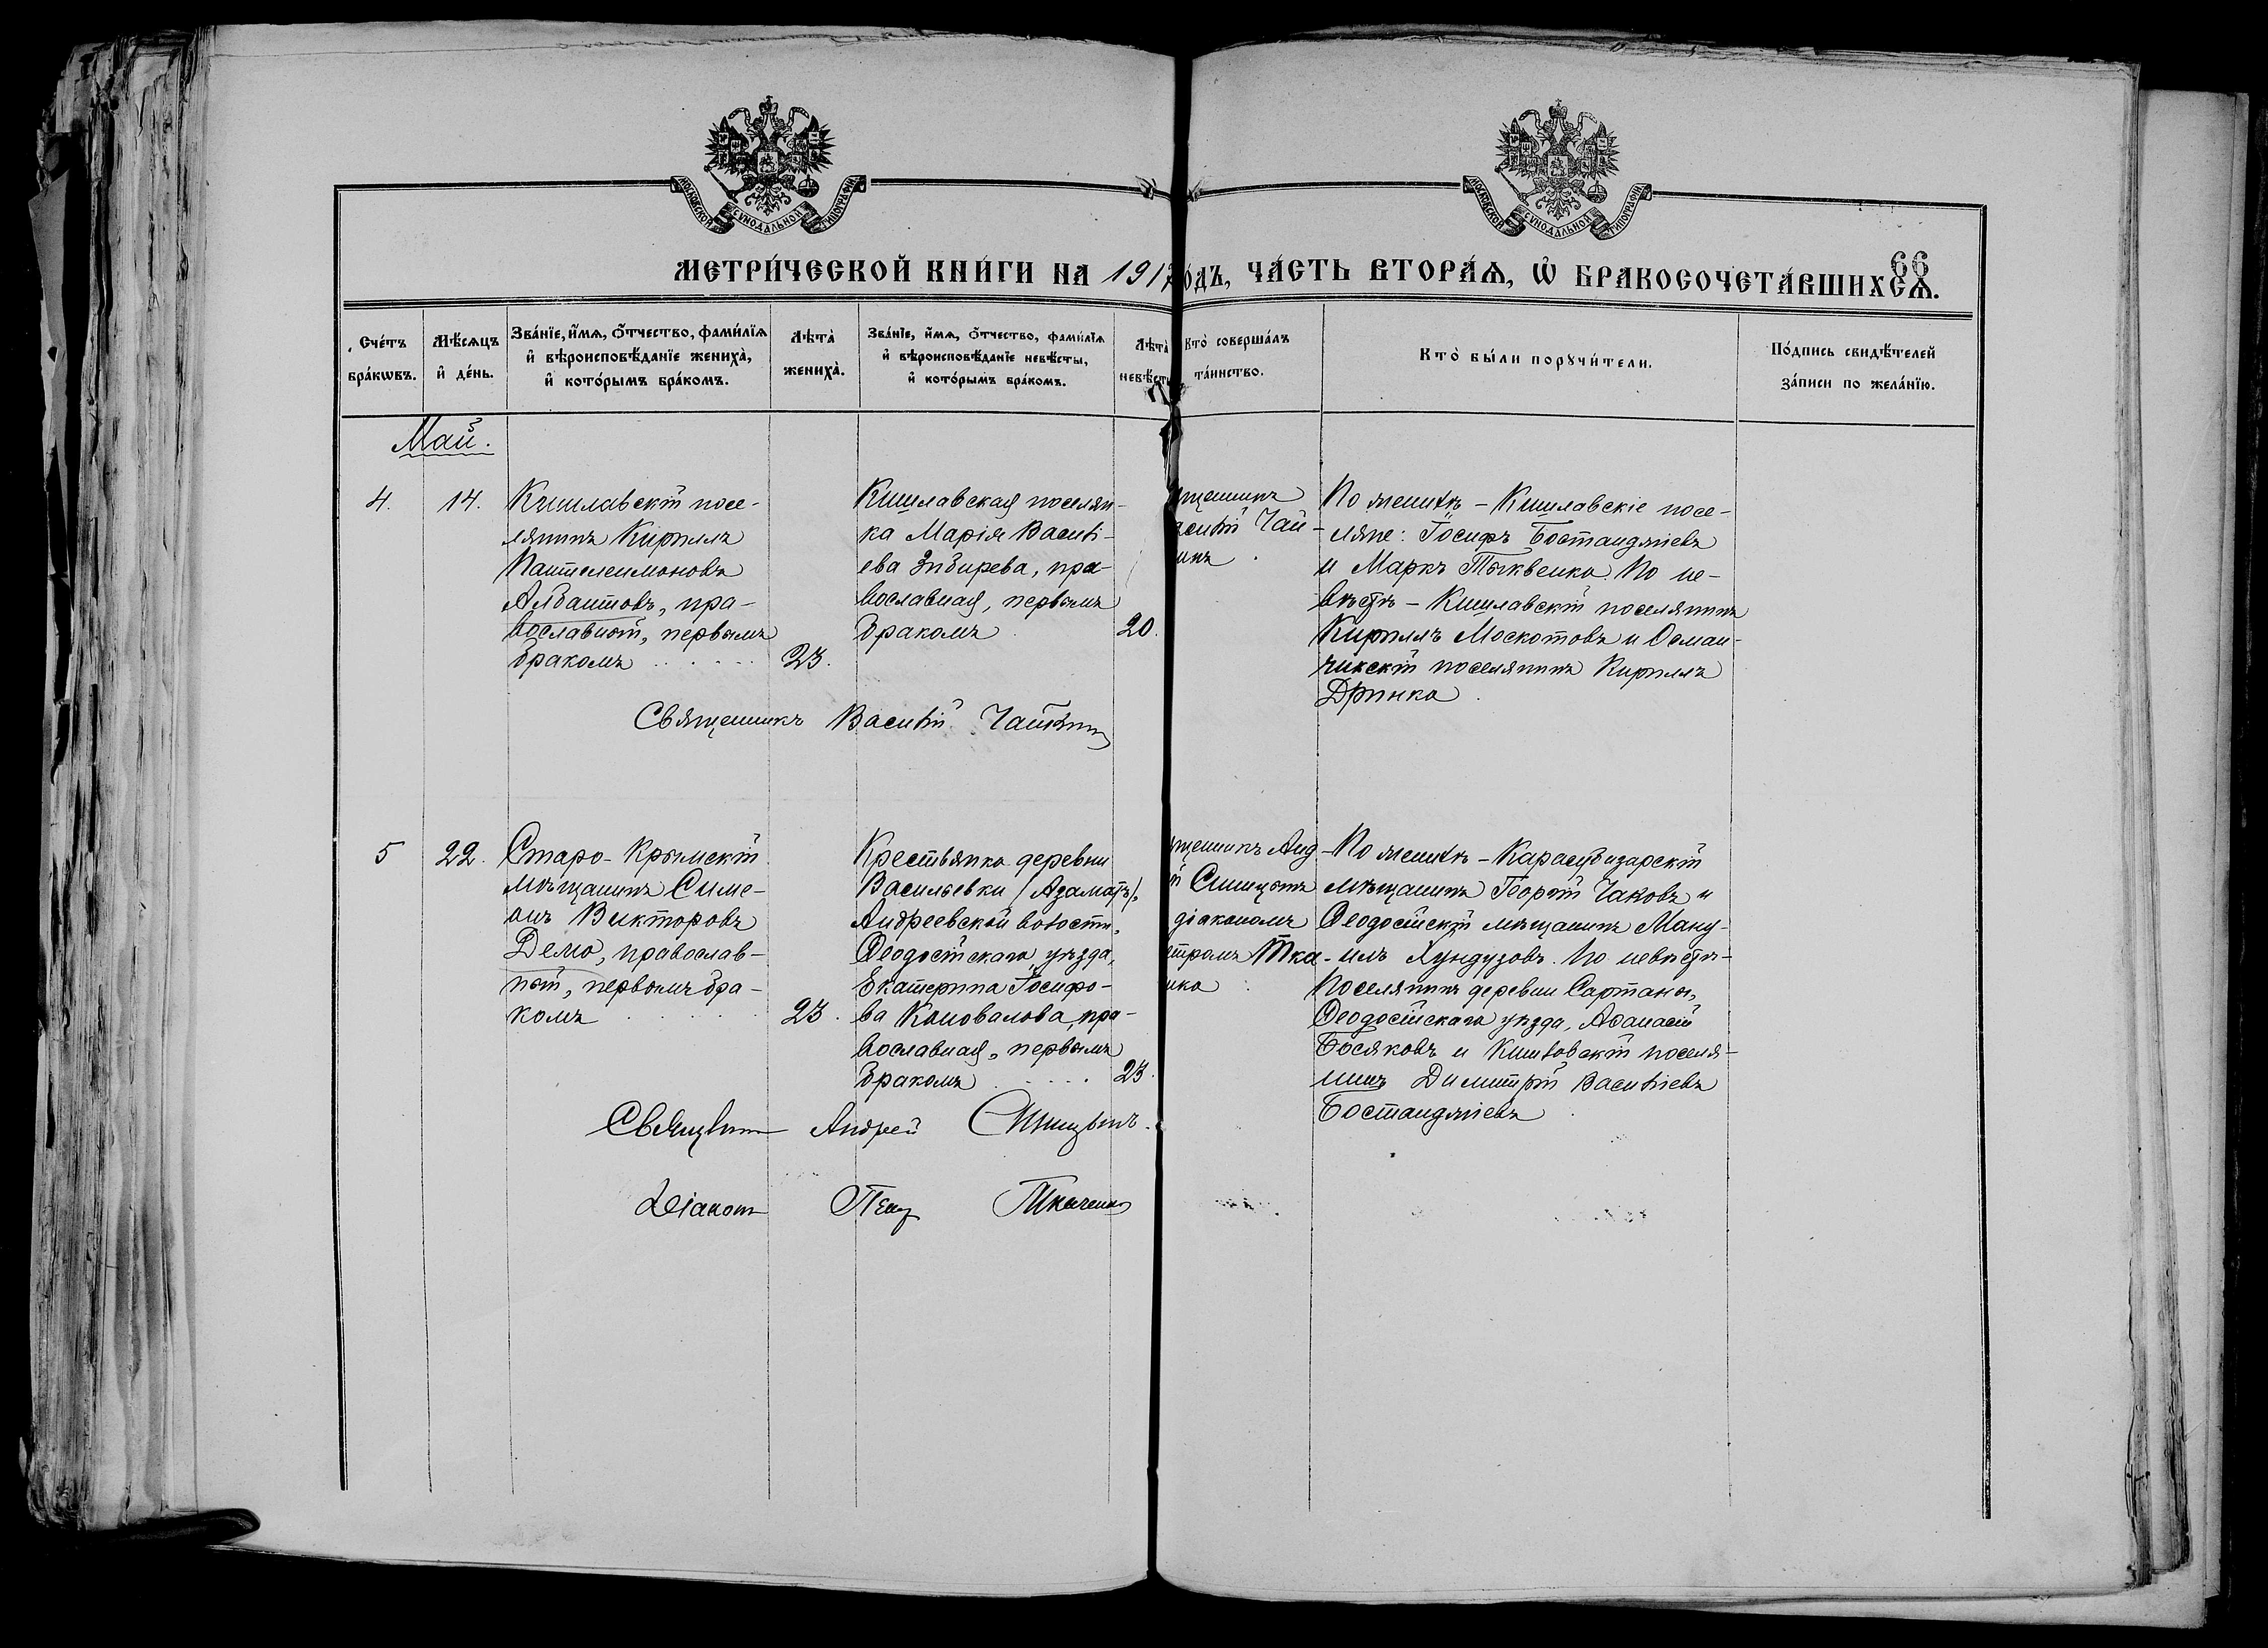 МОСКОВСКОЙ СѴНОДАЛЬНОЙ ТИПОГРАФІИ
МОСКОВСКОЙ СѴНОДАЛЬНОЙ ТИПОГРАФІИ
66
МЕТРИ́ЧЕСКОЙ КНИ́ГИ НА 1917 ОДЪ, ЧА́СТЬ ВТОРА́Ѧ, Ѡ БРАКОСОЧЕТА́ВШИХСѦ.
Сче́тъ
бра́кѡвъ.
Мѣ́сѧцъ
и де́нь.
Зва́нїе, и́мѧ, о́тчество, фами́лїѧ
и вѣроисповѣ́данїе жениха̀,
и кото́рымъ бра́комъ.
Лѣта̀
жениха̀.
Зва́нїе, и́мѧ, о́тчество, фами́лїѧ
и вѣроисповѣ́данїе невѣ́сты,
и кото́рымъ бра́комъ.
Лѣта̀
невѣ́сты
Кто̀ соверша́лъ
та́инство.
Кто̀ бы́ли порꙋчи́тели.
По́дпись свидѣ́телей
за́писи по жела́нїю.
Май.
4.
14.
Кишлавскій посе-
лянинъ Кириллъ
Пантелеимоновъ
Албантовъ, пра-
вославный, первымъ
бракомъ . . . . . . 23.
Кишлавская поселян-
ка Марія Василі-
ева Зибирева, пра-
вославная, первымъ
бракомъ . 20.
щенникъ
силій Чай-
инъ .
По женихѣ – Кишлавскіе посе-
ляне: Іосифъ Бостанджіевъ
и Маркъ Тыквенко. По не-
вѣстѣ – Кишлавскій поселянинъ
Кириллъ Москотовъ и Осман-
чикскій поселянинъ Кириллъ
Дринка .
Священникъ Василій Чайкинъ
5
22.
Старо-Крымскій
мѣщанинъ Симе-
онъ Викторовъ
Демо, православ-
ный, первымъ бра-
комъ . . . . . 23.
Крестьянка деревни
Васильевки (Адаматъ),
Андреевской волости,
Ѳеодосійскаго уѣзда,
Екатерина Іосифо-
ва Коновалова, пра-
вославная, первымъ
бракомъ . . . . . 23.
щенникъ Анд-
й Синицынъ
діакономъ
тромъ Тка-
нко .
По женихѣ – Карасубазарскій
мѣщанинъ Георгій Чаковъ и
Ѳеодосійскій мѣщанинъ Ману-
илъ Хундузовъ. По невѣстѣ –
поселянинъ деревни Сартаны,
Ѳеодосійскаго уѣзда, Аѳанасій
Босяковъ и Кишлавскій поселя-
нинъ Димитрій Василіевъ
Бостанджіевъ .
Священникъ Андрей Синицынъ.
Діаконъ Петръ Ткаченко